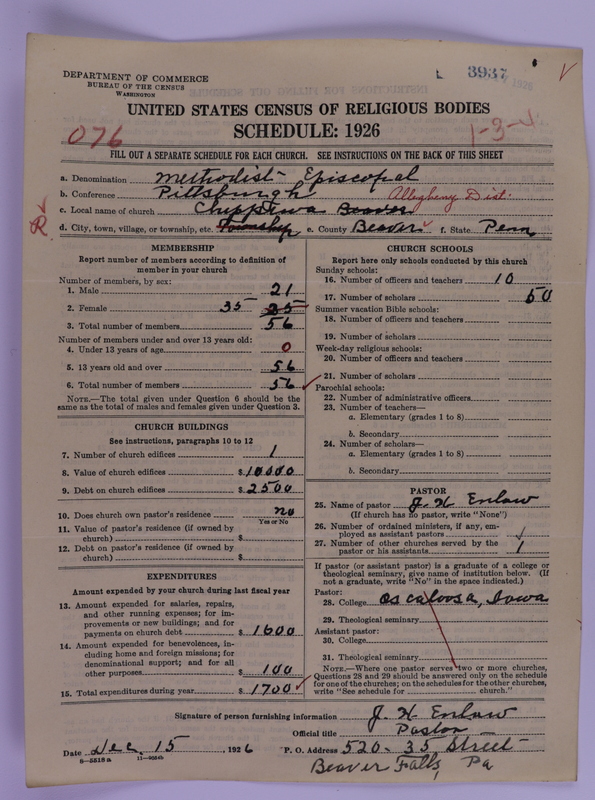 3937
1926
DEPARTMENT OF COMMERCE
BUREAU OF THE CENSUS
WASHINGTON
UNITED STATES CENSUS OF RELIGIOUS BODIES
SCHEDULE: 1926
076
1-3-
FILL OUT A SEPARATE SCHEDULE FOR EACH CHURCH. SEE INSTRUCTIONS ON THE BACK OF THIS SHEET
a. Denomination Methodist- Episcopal
b. Conference Pittsburgh Allegheny Dist.
c. Local name of church Chippewa Beaver
d. City, town, village, or township, etc. Township e. County Beaver f. State Penn
R
MEMBERSHIP
Report number of members according to definition of
member in your church
Number of members, by sex:
1. Male 21
2. Female 35 25
3. Total number of members 56
Number of members under and over 13 years old:
4. Under 13 years of age 0
5. 13 years old and over 56
6. Total number of members 56
NOTE.—The total given under Question 6 should be
same as the total of males and females given under Question 3.
CHURCH BUILDINGS
See instructions, paragraphs 10 to 12
7. Number of church edifices 1
8. Value of church edifices $10000
9. Debt on church edifices $2500
10. Does church own pastor's residence no
Yes or No
11. Value of pastor's residence (if owned by
church) $
12. Debt on pastor's residence (if owned by
church) $
EXPENDITURES
Amount expended by your church during last fiscal year
13. Amount expended for salaries, repairs,
and other running expenses; for im-
provements or new buildings; and for
payments on church debt $1600
14. Amount expended for benevolences, in-
cluding home and foreign missions; for
denominational support; and for all
other purposes $100
15. Total expenditures during year $1700
CHURCH SCHOOLS
Report here only schools conducted by this church
Sunday schools:
16. Number of officers and teachers 10
17. Number of scholars 50
Summer vacation Bible schools:
18. Number of officers and teachers
19. Number of scholars
Week-day religious schools:
20. Number of officers and teachers
21. Number of scholars
Parochial schools:
22. Number of administrative officers
23. Number of teachers—
a. Elementary (grades 1 to 8)
b. Secondary
24. Number of scholars—
a. Elementary (grades 1 to 8)
b. Secondary
PASTOR
25. Name of pastor J. H. Enlow
(If church has no pastor, write "None")
26. Number of ordained ministers, if any, em-
ployed as assistant pastors
27. Number of other churches served by the
pastor or his assistants 1
If pastor (or assistant pastor) is a graduate of a college or
theological seminary, give name of institution below. (If
not a graduate, write "No" in the space indicated.)
Pastor:
28. College Oscaloosa, Iowa
29. Theological seminary
Assistant pastor:
30. College
31. Theological seminary
NOTE.—Where one pastor serves two or more churches,
Questions 28 and 29 should be answered only on the schedule
for one of the churches; on the schedules for the other churches,
write "See schedule for church."
Signature of person furnishing information J. H. Enlow
Official title Pastor
Date Dec. 15 1926 P. O. Address 520- 35 Street
Beaver Falls, Pa
8—5518a